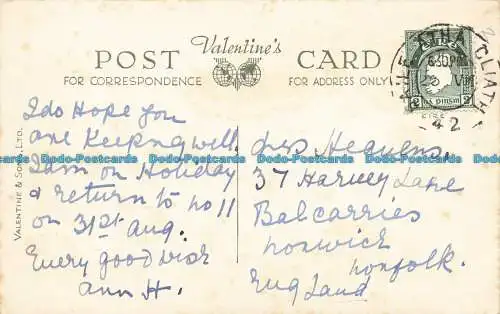 POST Valentine's CARD
FOR CORRESPONDENCE FOR ADDRESS ONLY
I do Hope you
are Keeping well
I am on Holiday
& return to no 11
on 31st Aug.
Every good wish
Ann H.
VALENTINE & SONS, LTD.
Hewens,
37 Harvey Lane
Balcarries
Norwich
Norfolk.
England
ATHA CLIATH
42
Dodo-Postcards Dodo-Postcards Dodo-Postcards Dodo-Postcards Dodo-Postcards Dodo-Postcards